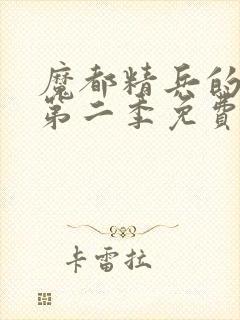 魔都精兵的
第二季免費
卡雷拉